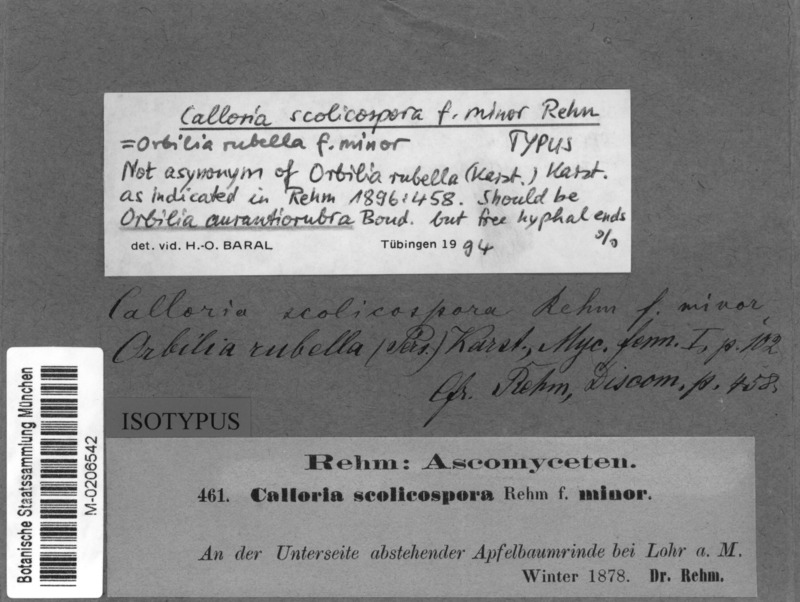 Calloria scolicospora f. minor Rehm
= Orbilia rubella f. minor TYPUS
Not a synonym of Orbilia rubella (Karst.) Karst.
as indicated in Rehm 1896:458. Should be
Orbilia aurantiorubra Boud. but free hyphal ends
%
det. vid. H.-O. BARAL Tübingen 1994
Calloria scolicospora Rehm f. minor,
Orbilia rubella (Pers.) Karst., Myc. fenn. I, p. 102
Cfr. Rehm, Discom. p. 458.
ISOTYPUS
Rehm: Ascomyceten.
461. Calloria scolicospora Rehm f. minor.
An der Unterseite abstehender Apfelbaumrinde bei Lohr a. M.
Winter 1878. Dr. Rehm.
Botanische Staatssammlung München
M-0206542